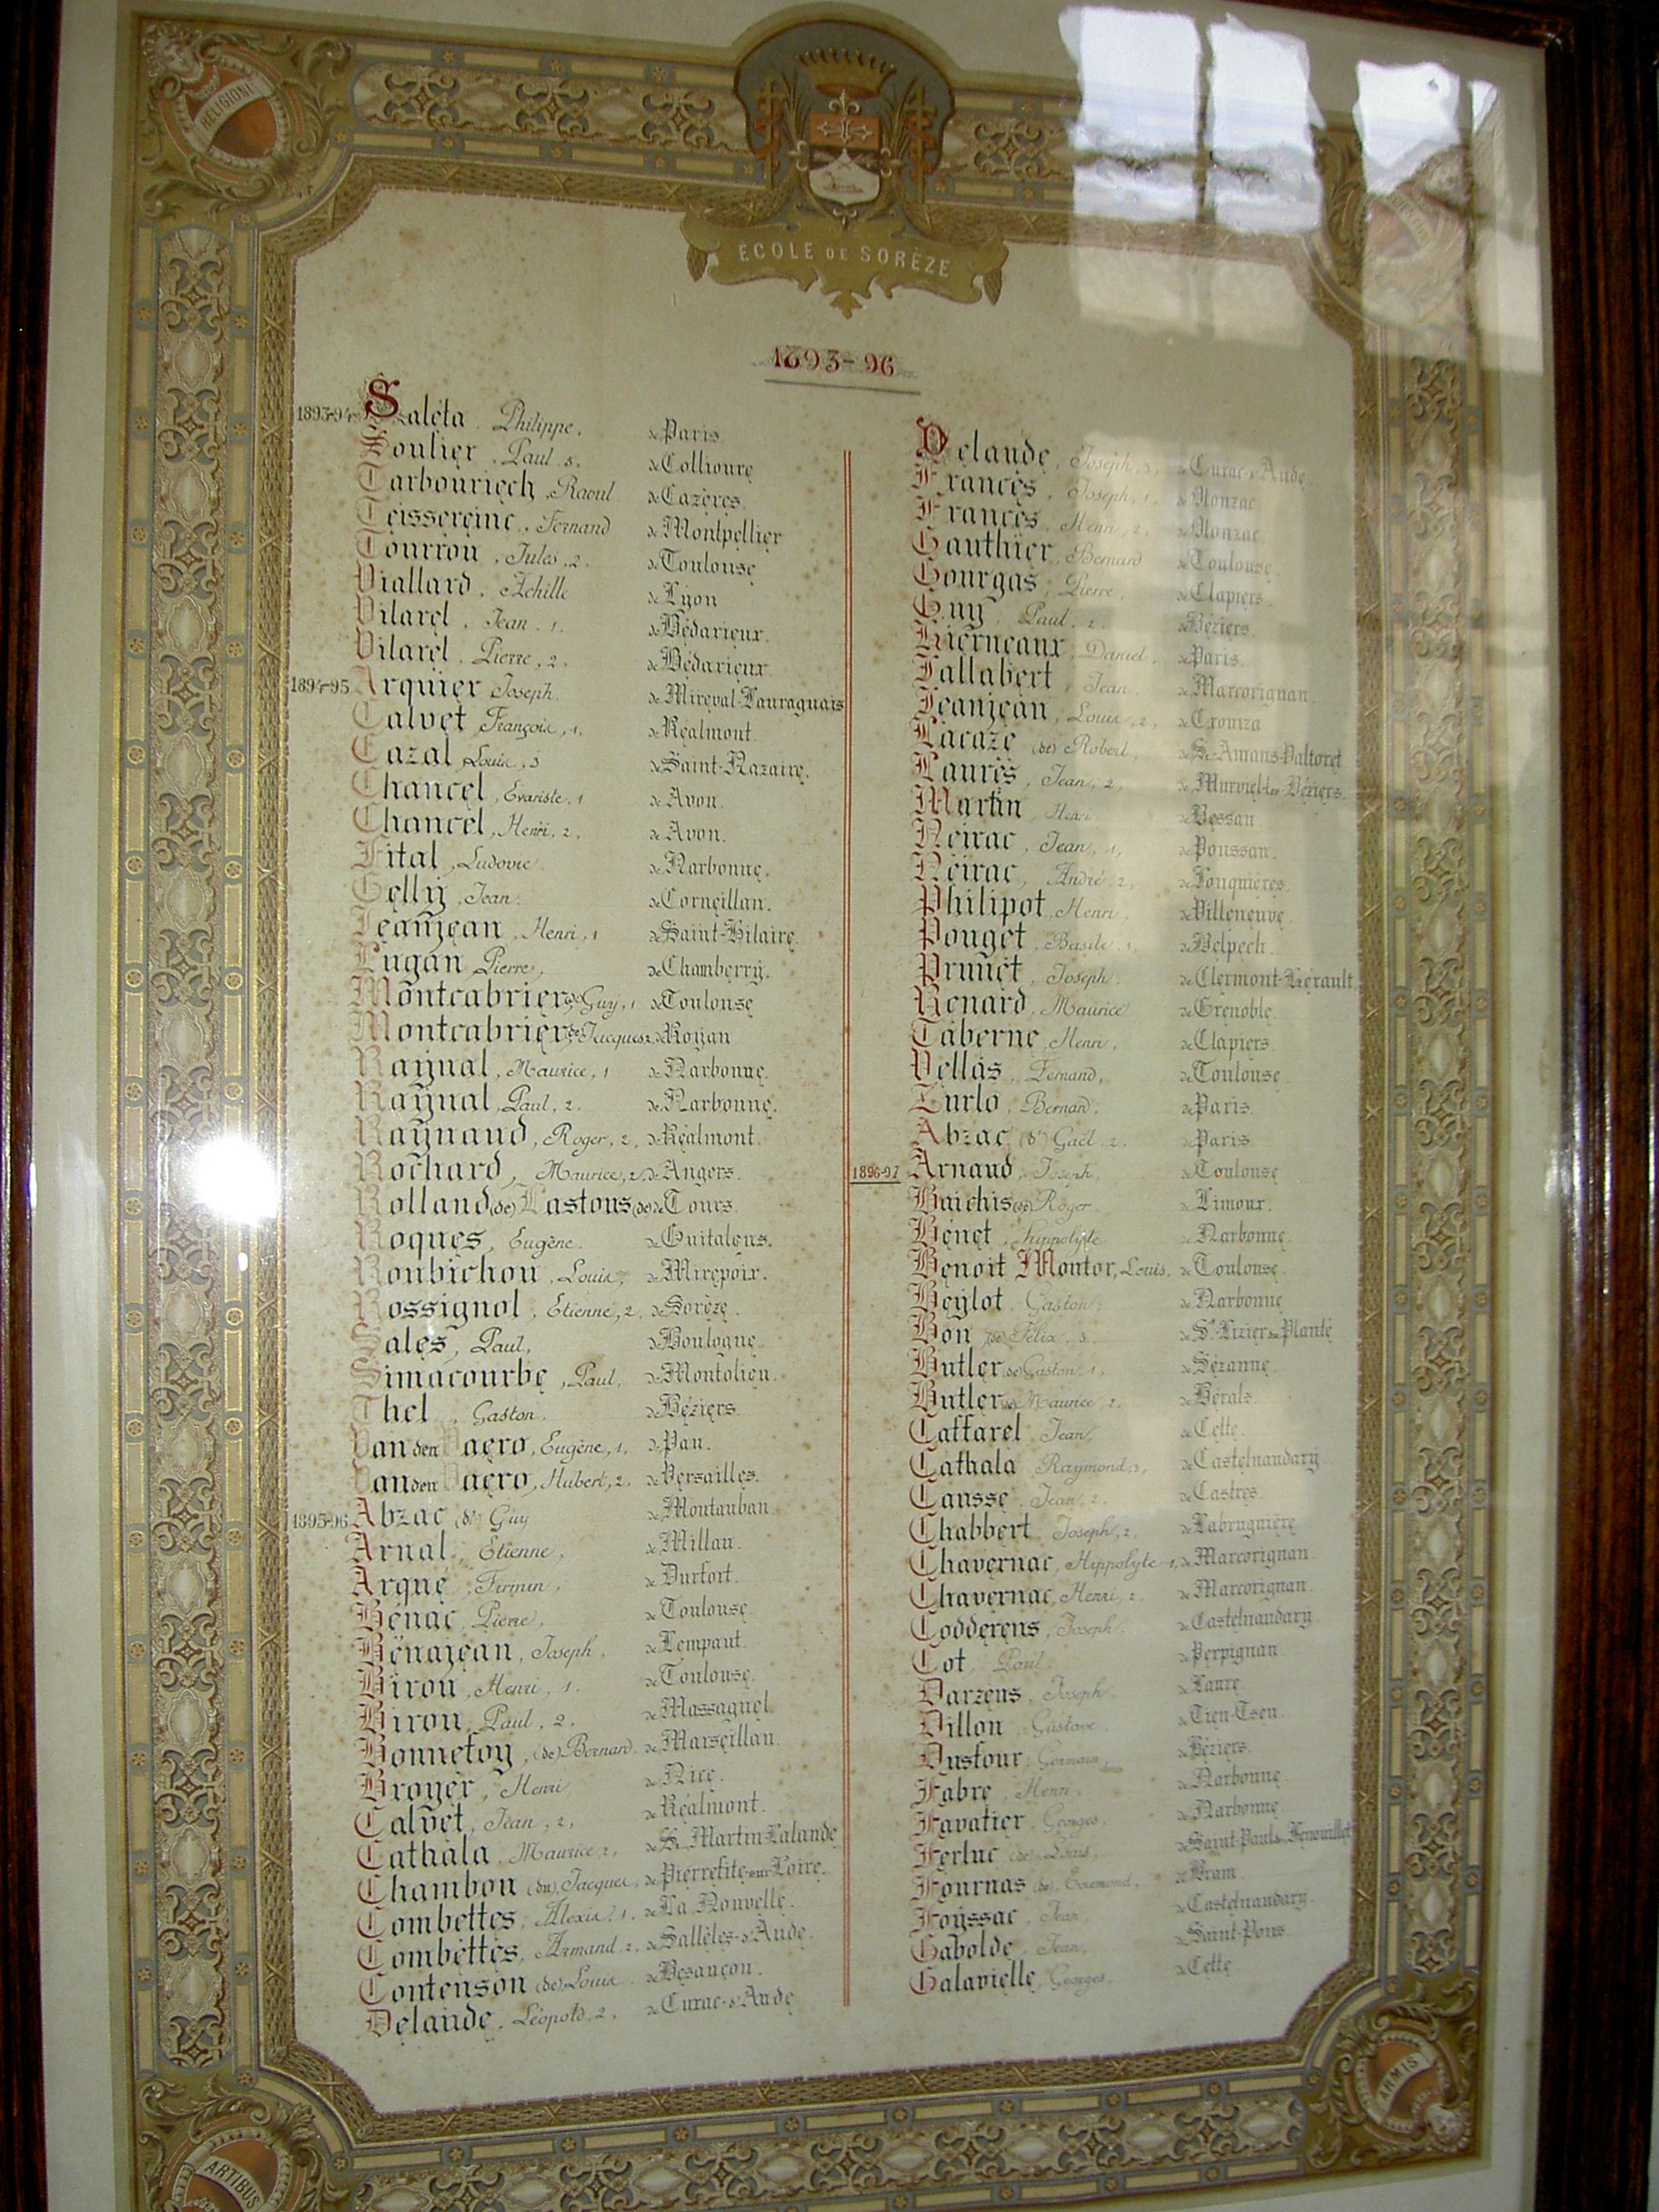 RELIGIONI
ÉCOLE DE SORÈZE
1893-96
1893-94 Saléta, Philippe, de Paris
Soulier, Paul, s. de Collioure
Tarbouriech, Raoul de Cazères.
Teissereinc, Fernand de Montpellier
Tourrou, Jules, 2. de Toulouse
Viallard, Achille de Lyon
Vilarel, Jean, 1. de Bédarieux.
Vilarel, Pierre, 2. de Bédarieux.
1894-95 Arquier Joseph. de Mireval-Lauraguais
Calvet François, 1, de Réalmont
Cazal Louis, 3 de Saint-Nazaire.
Chancel, Evariste, 1 de Avon.
Chancel, Henri, 2, de Avon.
Fital, Ludovic de Narbonne.
Gelly, Jean. de Corneillan.
Jeanjean, Henri, 1 de Saint-Hilaire.
Lugan Pierre, de Chamberry.
Montcabrier de Guy, 1 de Toulouse
Montcabrier de Jacques 2, de Royan
Raynal, Maurice, 1 de Narbonne.
Raynal, Paul, 2. de Narbonne.
Raynaud, Roger, 2, de Réalmont.
Rochard, Maurice, 2, de Angers.
Rolland (de) Lastous (de) de Tours.
Roques, Eugène. de Guitalens.
Roubichou, Louis, de Mirepoix.
Rossignol, Etienne, 2. de Sorèze.
Sales, Paul, de Boulogne
Simacourbe, Paul, de Montolieu.
Thel, Gaston. de Béziers.
Van den Vaero, Eugène, 1, de Pau.
Van den Vaero, Hubert, 2. de Versailles.
1895-96 Abzac (d') Guy de Montauban
Arnal, Etienne, de Millau.
Arqué, Firmin, de Durfort.
Bénac, Pierre, de Toulouse
Bénajean, Joseph, de Lempaut.
Biron, Henri, 1. de Toulouse.
Biron, Paul, 2, de Massaguel.
Bonnefoy, (de) Bernard de Marseillan.
Broyer, Henri de Nice.
Calvet, Jean, 2, de Réalmont.
Cathala, Maurice, 2, de St Martin-Lalande
Chambon (du), Jacques, de Pierrefite-sur-Loire.
Combettes, Alexis, 1. de La Nouvelle.
Combettes, Armand 2. de Sallèles-d'Aude.
Contenson (de) Louis de Besançon.
Delaude, Léopold, 2, de Cuxac-d'Aude
Delaude, Joseph, de Cuxac-d'Aude
Francès, Joseph, 1, de Monzac
Francès, Henri, 2, de Monzac
Gauthier, Bernard de Toulouse
Gourgas, Pierre, de Clapiers.
Guy, Paul, 2. de Béziers
Hierneaux, Daniel, de Paris
Jallabert, Jean. de Marcorignan
Jeanjean, Louis, 2, de
Lacaze (de) Robert, de St-Amans-Valtoret
Laurès, Jean, 2, de Murviel-les-Béziers.
Martin Henri de Bessan.
Néirac, Jean, 1, de Poussan.
Néirac, André, 2, de Fouquières.
Philipot, Henri, de Villeneuve
Pouget, Basile, 1, de Belpech.
Prunet, Joseph. de Clermont-Hérault.
Renard, Maurice de Grenoble.
Taberne, Henri, de Clapiers.
Vellas, Fernand, de Toulouse.
Zurlo, Bernard. de Paris.
Abzac (d') Gaël, 2. de Paris
1896-97 Arnaud, Joseph, de Toulouse
Baichis (de) Roger de Limoux.
Bénet, Hippolyte de Narbonne.
Benoit Montor, Louis, de Toulouse.
Beylot, Gaston, de Narbonne
Bon (de) Félix, 3. de St Lizier du Planté
Butler (de) Gaston, 1, de Sézanne
Butler (de) Maurice 2. de Hérals
Caffarel, Jean, de Cette.
Cathala Raymond, 3, de Castelnaudary
Causse, Jean, 2. de Castres.
Chabbert, Joseph, 2, de Labruguière
Chavernac, Hippolyte 1, de Marcorignan
Chavernac, Henri, 2 de Marcorignan.
Codderens, Joseph, de Castelnaudary
Cot, Paul. de Perpignan
Darzens, Joseph, de Laure
Dillon, Gustave, de Tien-Tsen.
Dusfour, Germain, de Béziers.
Fabre, Henri, de Narbonne
Favatier, Georges, de Narbonne.
Ferluc (de) Louis, de Saint-Paul-de-Fenouillet
Fournas (de), de Bram
Foyssac, Jean, de Castelnaudary.
Gabolde, Jean, de Saint-Pons
Galavielle, Georges, de Cette
ARTIBUS
ARMIS